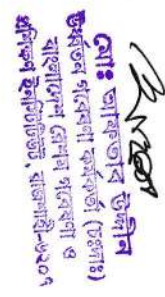 মোঃ আকতার উদ্দীন
ঊর্ধ্বতন গবেষণা কর্মকর্তা (চঃদাঃ)
বাংলাদেশ রেশম গবেষণা ও
প্রশিক্ষণ ইনস্টিটিউট, রাজশাহী-৬২০৭